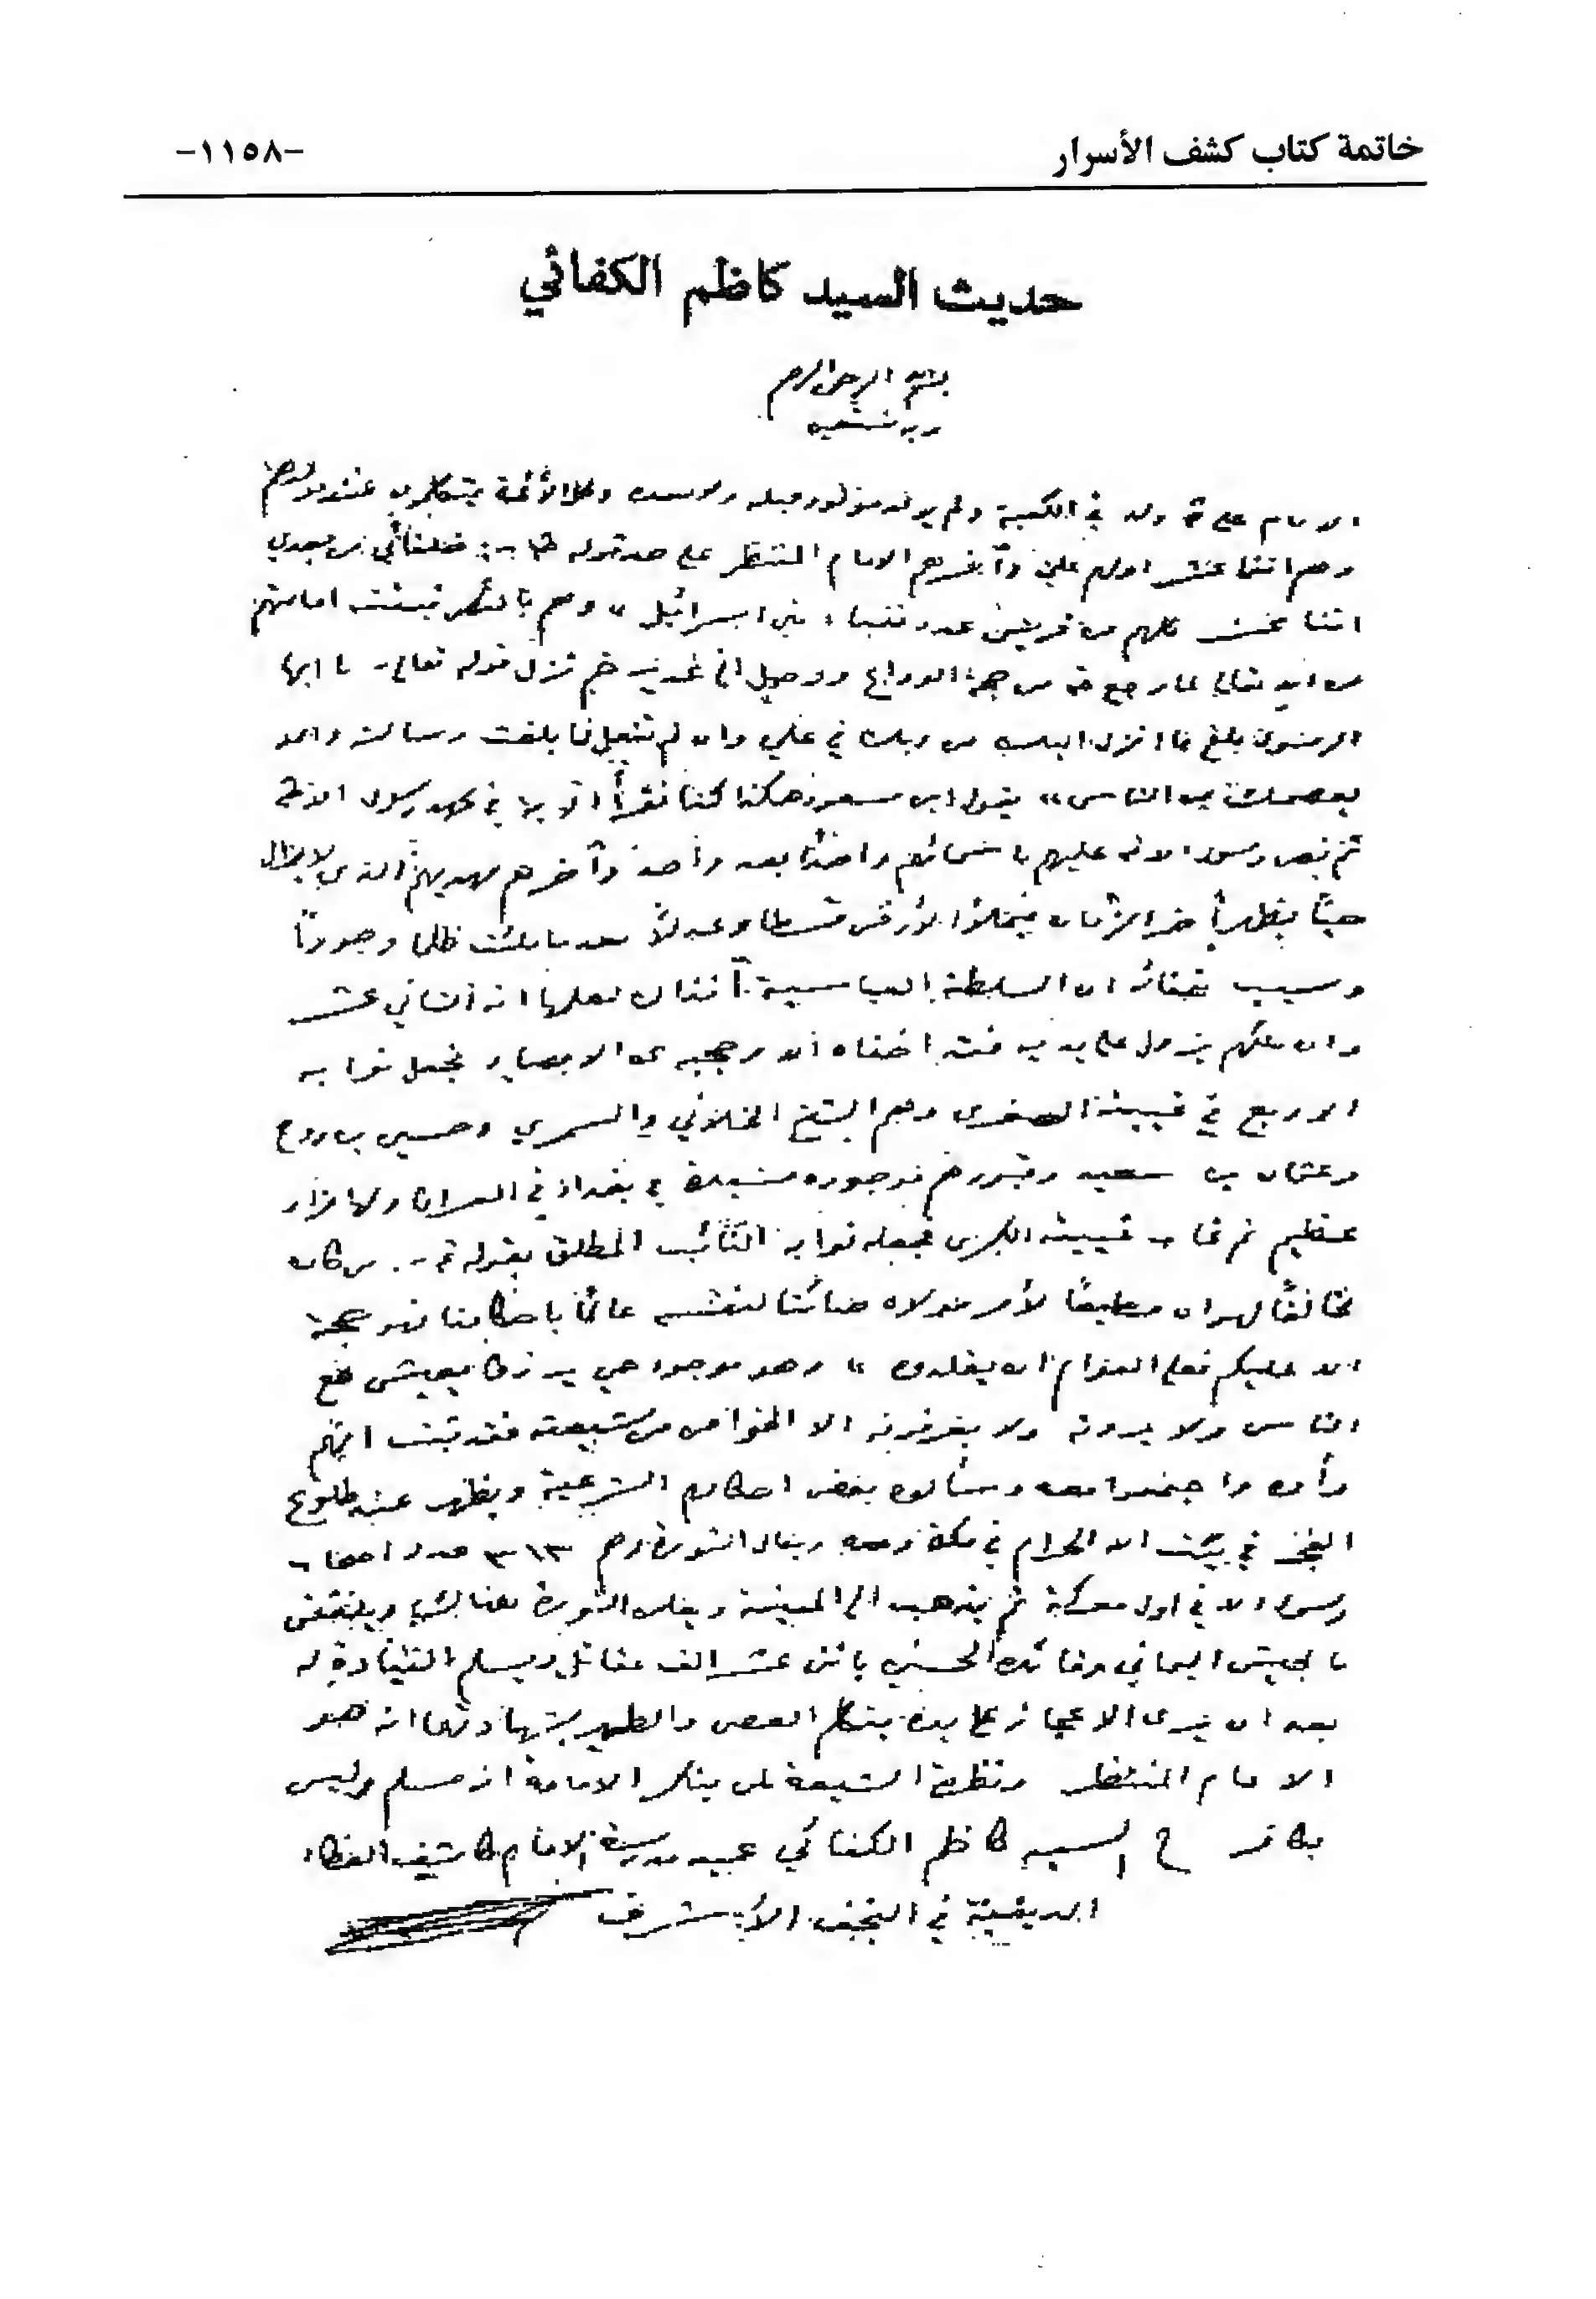 خاتمة كتاب كشف الأسرار
-١١٥٨-
حديث السيد كاظم الكفائي
بسم الله الرحمن الرحيم
وبه نستعين
الامام علي ولد في الكعبة ولم يولد مولود قبله ولا بعده وكل الأئمة يتكلمون عند
وهم اثنا عشر اولهم علي وآخرهم الامام المنتظر على حد قوله خلفائي من بعدي
اثنا عشر كلهم من قريش عدد نقباء بني اسرائيل » وهم بالنص تثبت امامتهم
من الله تعالى لما رجع من حجة الوداع ووصل الى غدير خم نزل قوله تعالى يا ايها
الرسول بلغ ما انزل اليك من ربك في علي وان لم تفعل فما بلغت رسالته والله
يعصمك من الناس » يقول ابن مسعود هكذا كنا نقرأ الآية في عهد رسول الله
ثم نص رسول الله عليهم باسمائهم واحداً بعد واحد وآخرهم مهديهم الذي لا يزال
حياً يظهر آخر الزمان فيملأ الأرض قسطا وعدلاً بعد ما ملئت ظلما وجوراً
وسبب اختفائه ان السلطة العباسية آنذاك لعلمها انه الثاني عشر
وان ملكهم يزول على يديه فقد اخفاه الله وحجبه عن الابصار فجعل نوابه
الاربع في غيبته الصغرى وهم الشيخ الخلاني والسمري وحسين بن روح
وعثمان بن سعيد وقبورهم موجوده مشيدة في بغداد في العراق ولها مزار
عظيم ثم غاب غيبته الكبرى فجعله نوابه النائب المطلق بقوله من كان
مخالفاً لهواه مطيعاً لأمر مولاه صائناً لنفسه عالماً باحكامنا فهو حجة
الله عليكم فعلى العوام ان يقلدوه » وهو موجود حي يرزق يعيش مع
الناس ولا يرونه ولا يعرفونه الا الخواص من شيعته فقد ثبت انهم
رأوه واجتمعوا معه وسألوه بعض احكام الشرعية ويظهر عند طلوع
الفجر في بيت الله الحرام في مكة ومعه رجال الثورة وهم ٣١٣ عدد اصحاب
رسول الله في اول معركة ثم يذهب الى المدينة ويعلن الثورة هنالك ويلتقي
بالجيش اليماني وقائده الحسني باثني عشر الف مقاتل ويسلم القيادة له
بعد ان يرى الاعجاز على يده يتكلم العصى والطير بشهادتهما انه هو
الامام المنتظر ونظرية الشيعة لمن ينكر الامامة انه مسلم وليس
بكافر السيد كاظم الكفائي عميد مدرسة الامام كاشف الغطاء
الدينية في النجف الأشرف